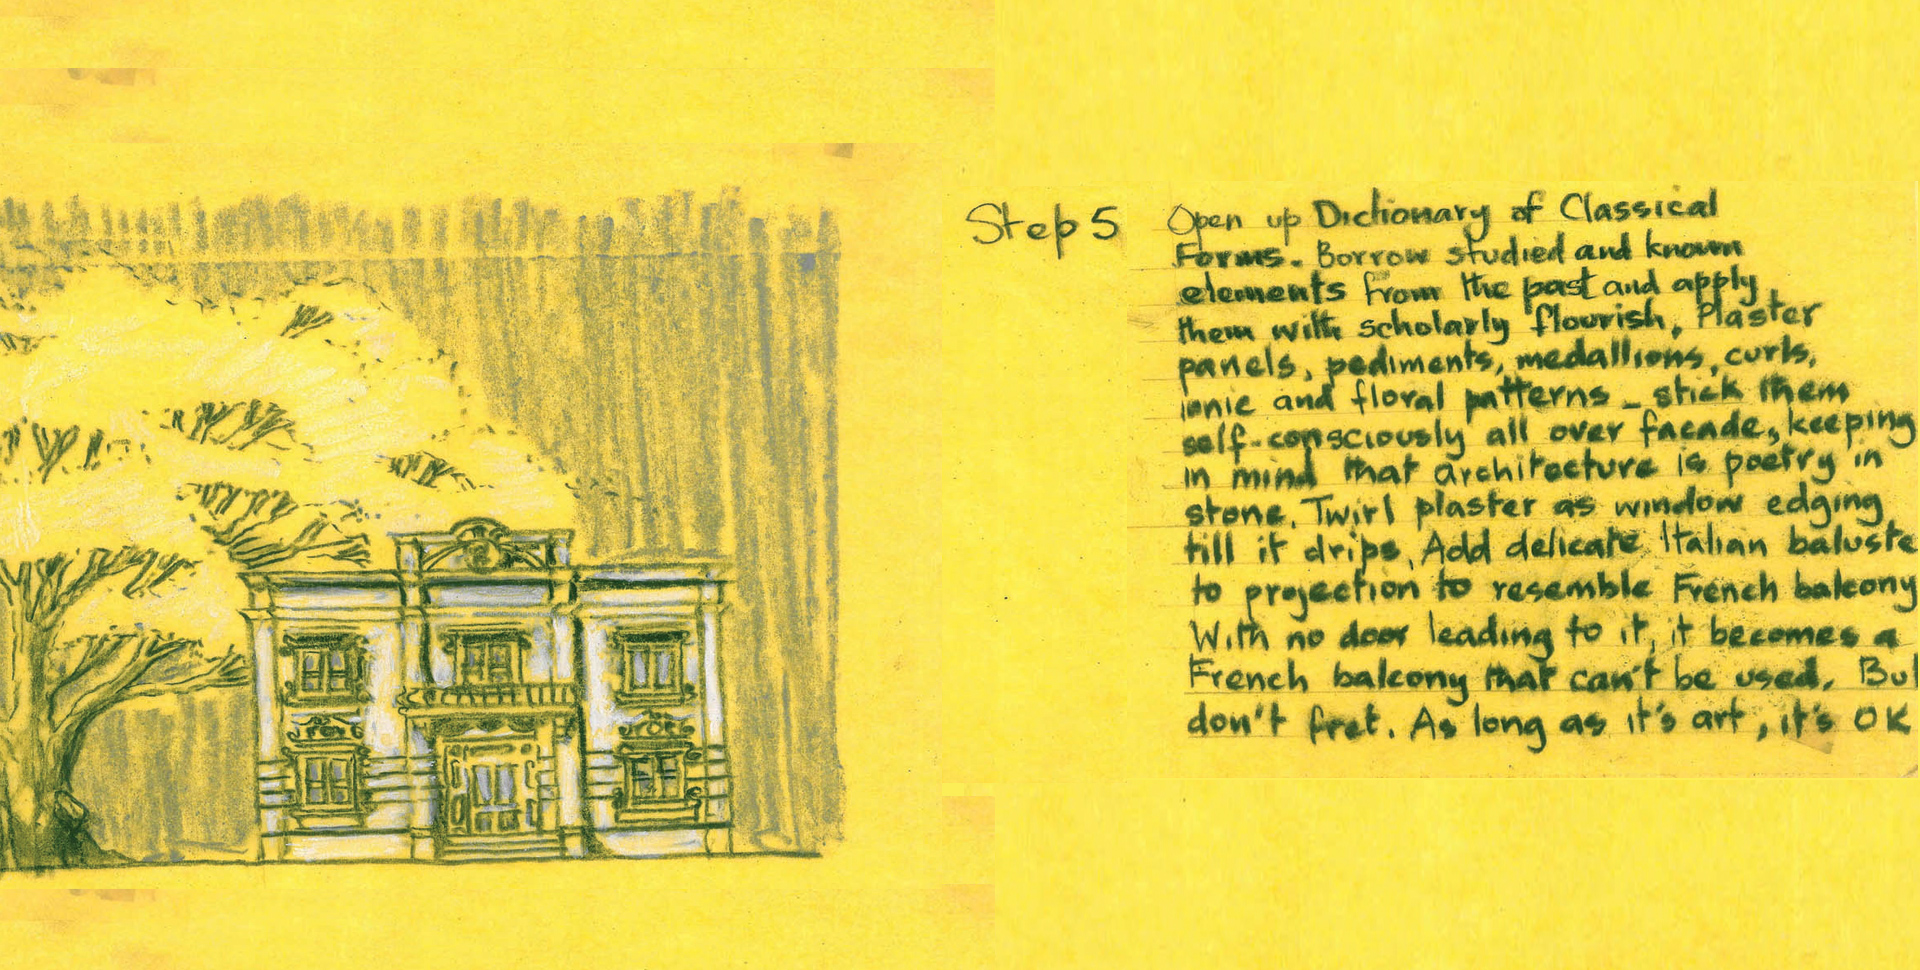 Step 5
Open up Dictionary of Classical
Forms. Borrow studied and known
elements from the past and apply
them with scholarly flourish. Plaster
panels, pediments, medallions, curls,
ionic and floral patterns - stick them
self-consciously all over facade, keeping
in mind that architecture is poetry in
stone. Twirl plaster as window edging
till it drips. Add delicate Italian baluste
to projection to resemble French balcony
With no door leading to it, it becomes a
French balcony that can't be used. But
don't fret. As long as it's art, it's OK